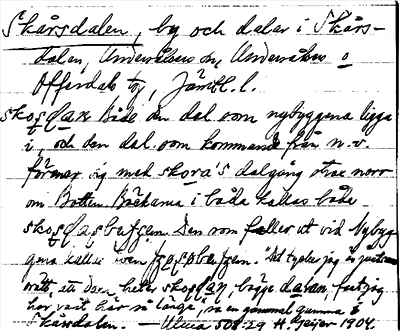 Skårsdalen, by och dalar i Skårs-
dalen, Undersåkers sn, Undersåkers o
Offerdals tg, Jämtl. l.
Både den dal som nybyggena ligga
i, och den dal som kommande från n.v.
förenar sig med skora's dalgång strax norr
om Botten Bäckarna i båda kallas både
Den som faller ut vid Nybyg-
gena kallas även "Det tycker jag är
rätt, att den heter bägge fast jag
har varit här så länge", sa en gammal gumma i
Skårsdalen. — Ulma 508:29 H. Geijer 1904.